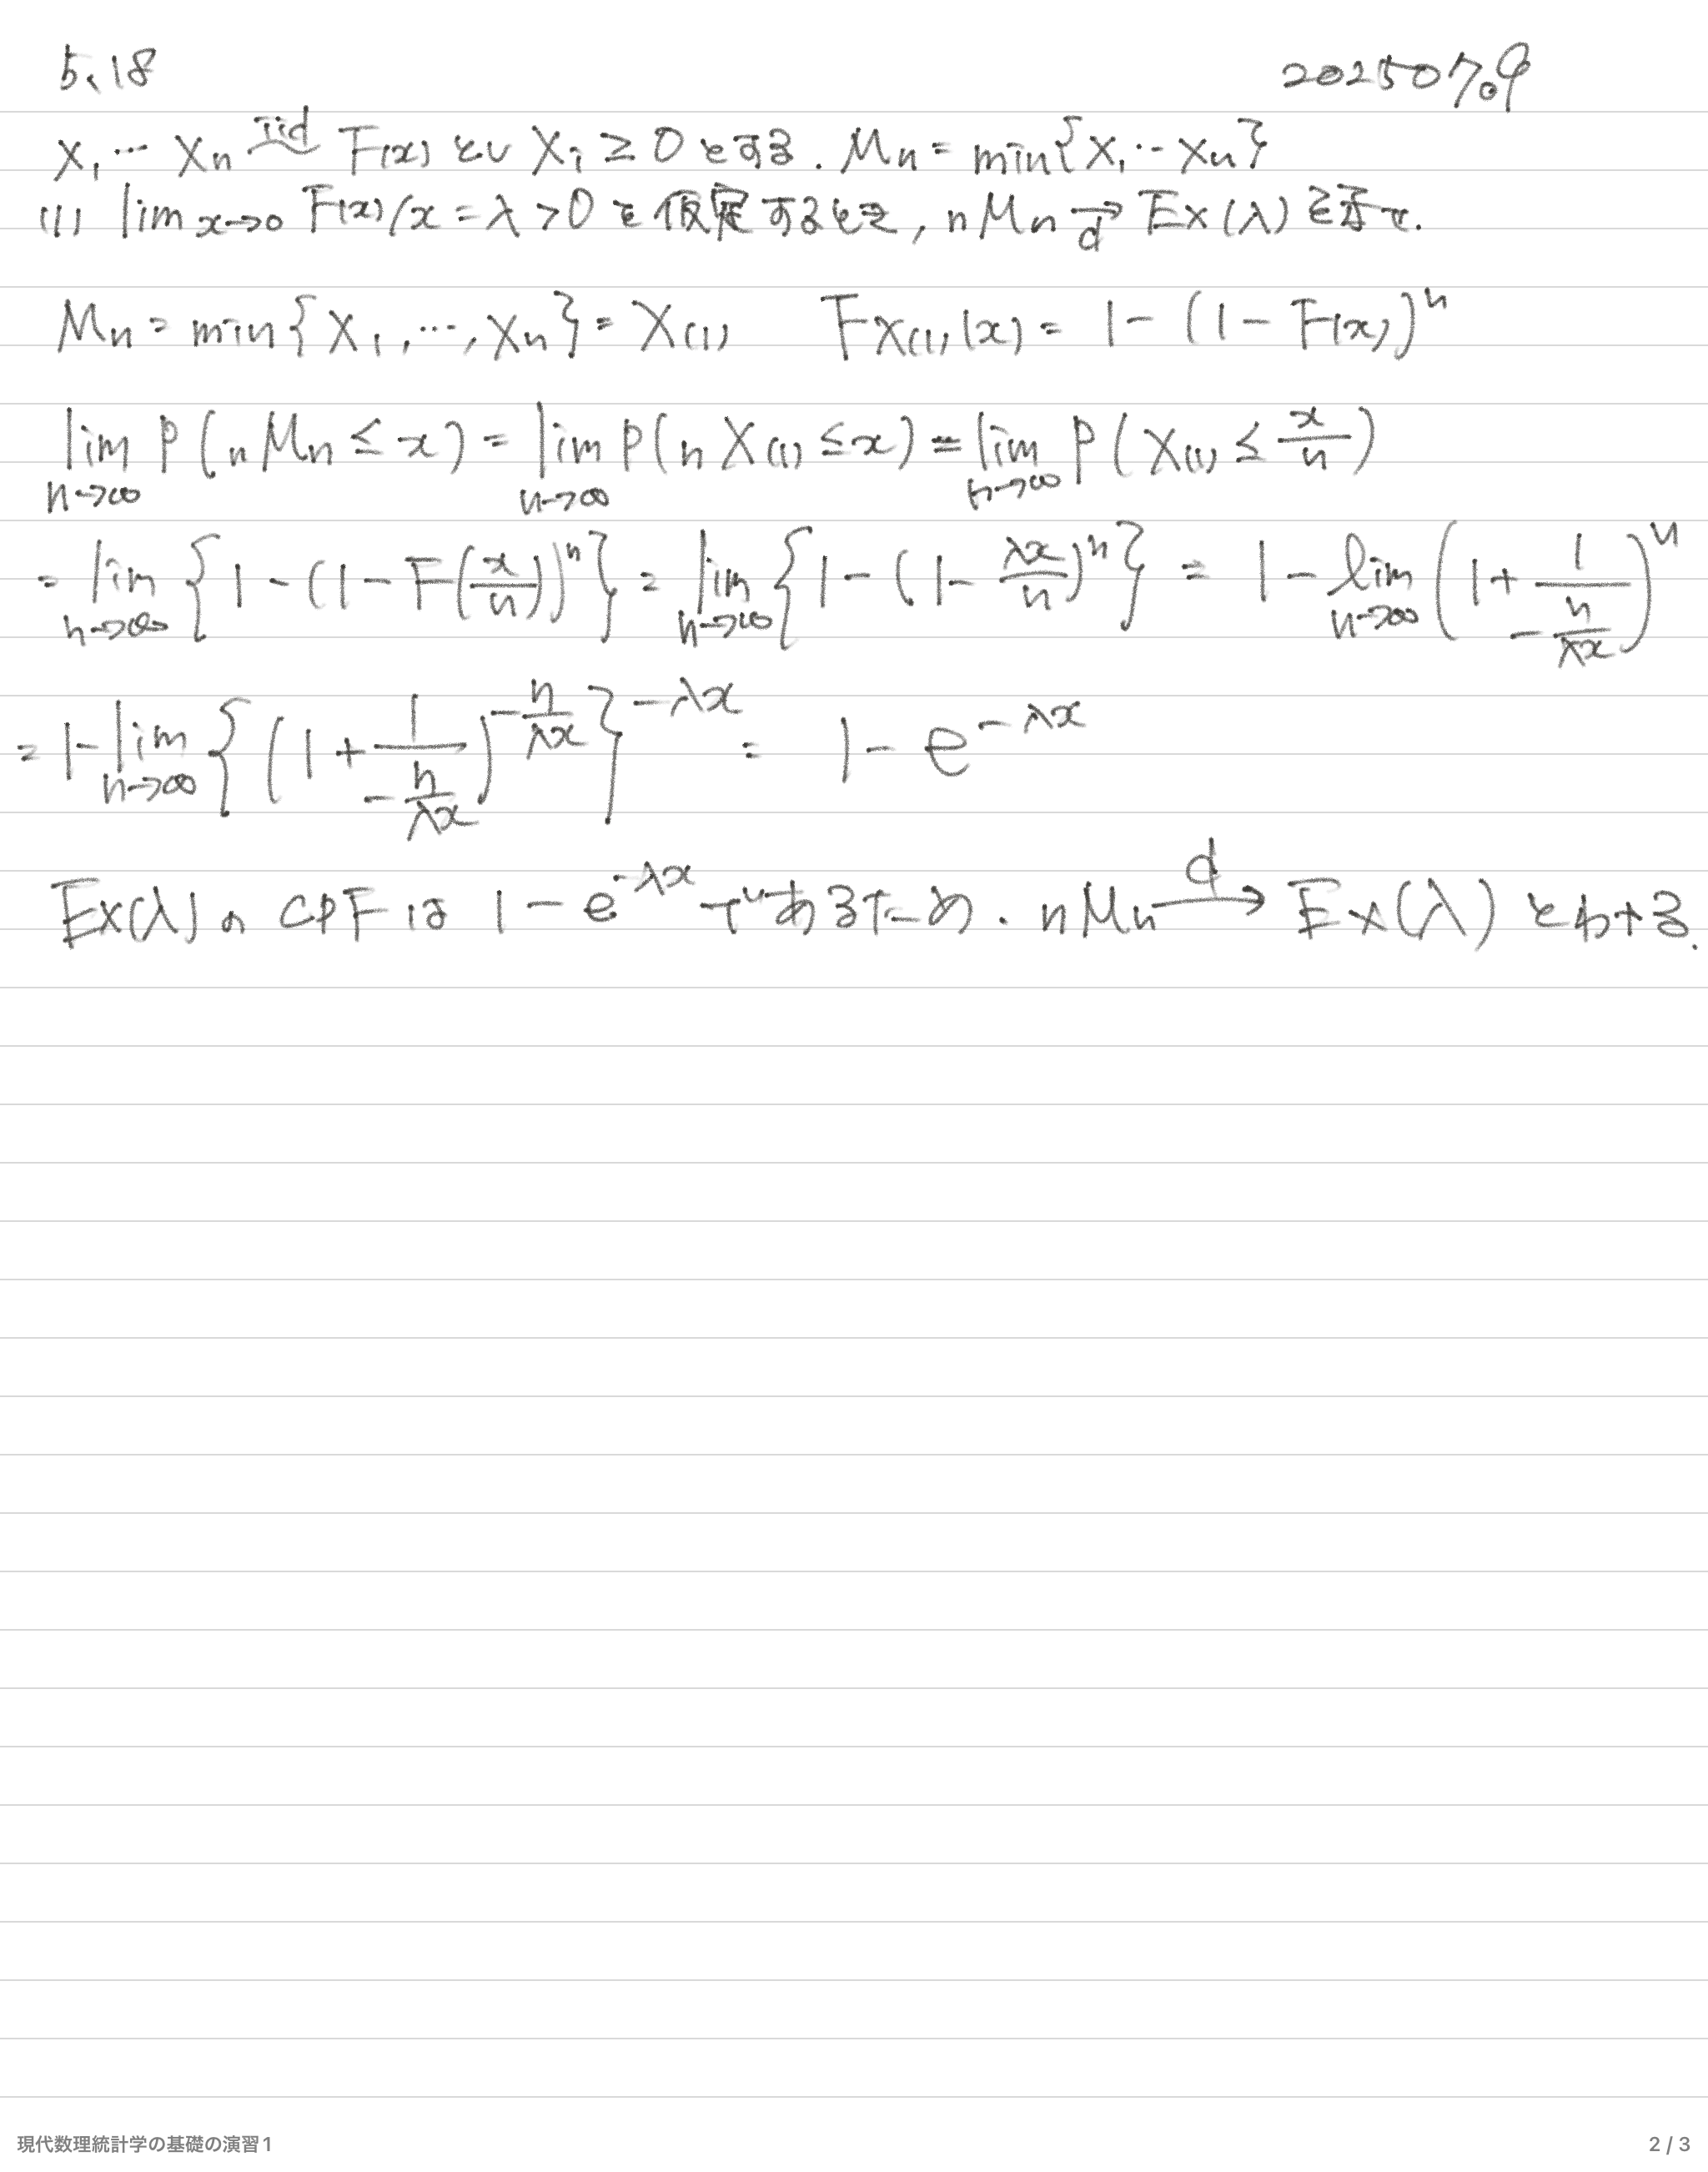 5.18 20250709
X₁…Xn iid~ F(x) とし Xi ≥ 0 とする. Mn = min{X₁…Xn}
(1) lim x→0 F(x)/x = λ > 0 を仮定するとき, nMn →d Ex(λ) を示せ.
Mn = min{X₁,…,Xn} = X(1) F_X(1)(x) = 1 − (1 − F(x))ⁿ
lim n→∞ P(nMn ≤ x) = lim n→∞ P(nX(1) ≤ x) = lim n→∞ P(X(1) ≤ x/n)
= lim n→∞ {1 − (1 − F(x/n))ⁿ} = lim n→∞ {1 − (1 − λx/n)ⁿ} = 1 − lim n→∞ (1 + 1/(−n/λx))ⁿ
= 1 − lim n→∞ {(1 + 1/(−n/λx))^(−n/λx)}^(−λx) = 1 − e^(−λx)
Ex(λ) の CDF は 1 − e^(−λx) であるため. nMn →d Ex(λ) とわかる.
現代数理統計学の基礎の演習1 2 / 3